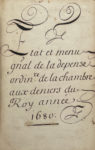 Etat et menu
gnal de la depense
ordin.re de la chambre
aux deniers du
Roy année
1680.